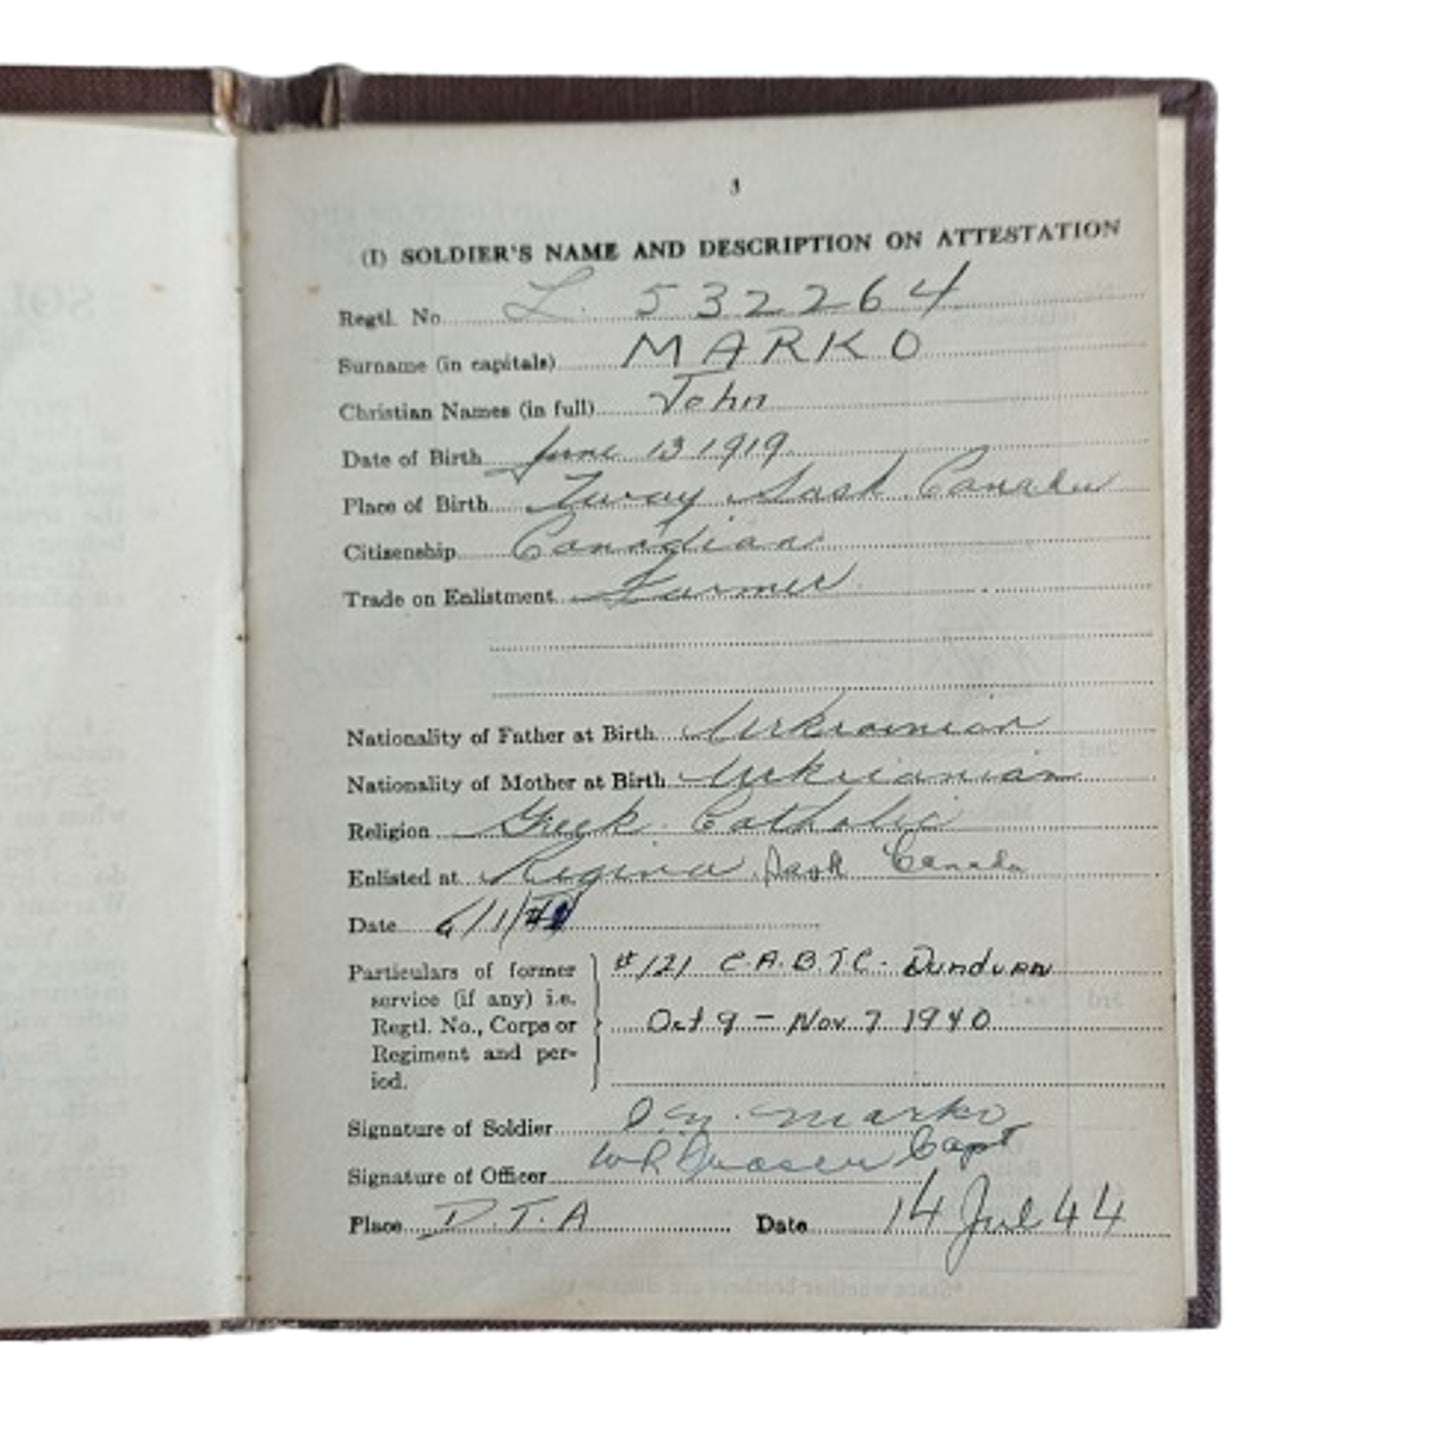 3
(I) SOLDIER'S NAME AND DESCRIPTION ON ATTESTATION
Regtl. No. L. 532264
Surname (in capitals) MARKO
Christian Names (in full) John
Date of Birth June 13 1919
Place of Birth Tway Sask Canada
Citizenship Canadian
Trade on Enlistment Farmer
Nationality of Father at Birth Urkrainian
Nationality of Mother at Birth Urkrianian
Religion Greek Catholic
Enlisted at Regina Sask Canada
Date 6/1/
Particulars of former #121 C.A.B.T.C. Dundurn
service (if any) i.e.
Regtl. No., Corps or Oct 9 - Nov 7 1940
Regiment and per-
iod.
Signature of Soldier Marko
Signature of Officer Capt
Place D.T.A Date 14 Jul 44